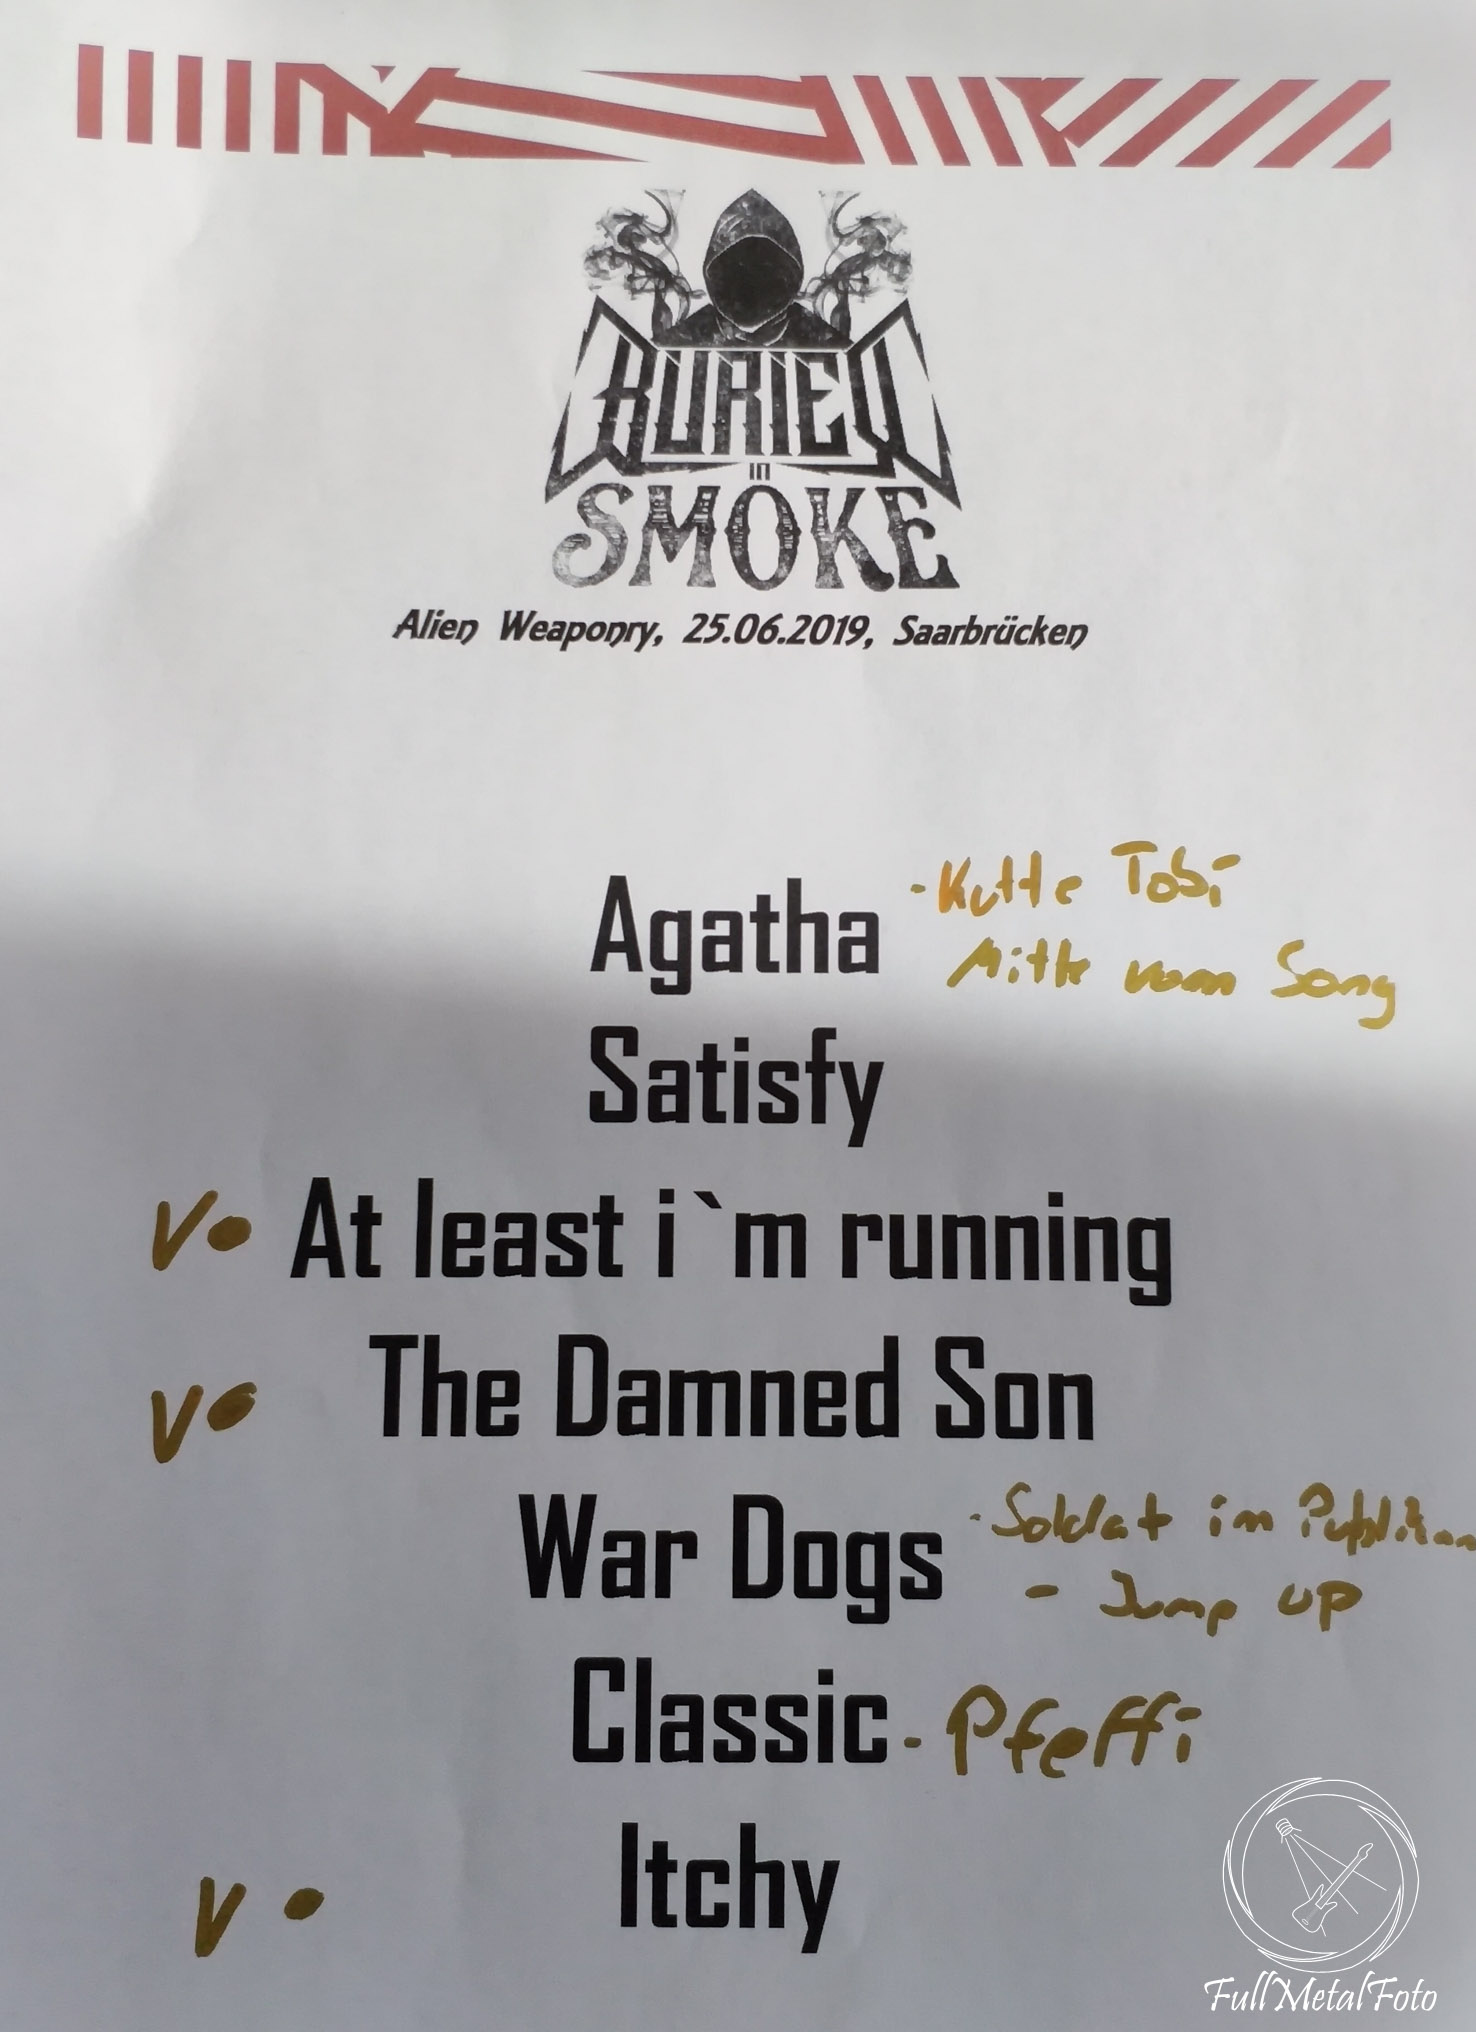 BURIED
in
SMOKE
Alien Weaponry, 25.06.2019, Saarbrücken
Agatha - Kutte Tobi
Mitte vom Song
Satisfy
V• At least i`m running
V• The Damned Son
War Dogs - Soldat im Publikum
- Jump up
Classic - Pfeffi
V • Itchy
FullMetalFoto